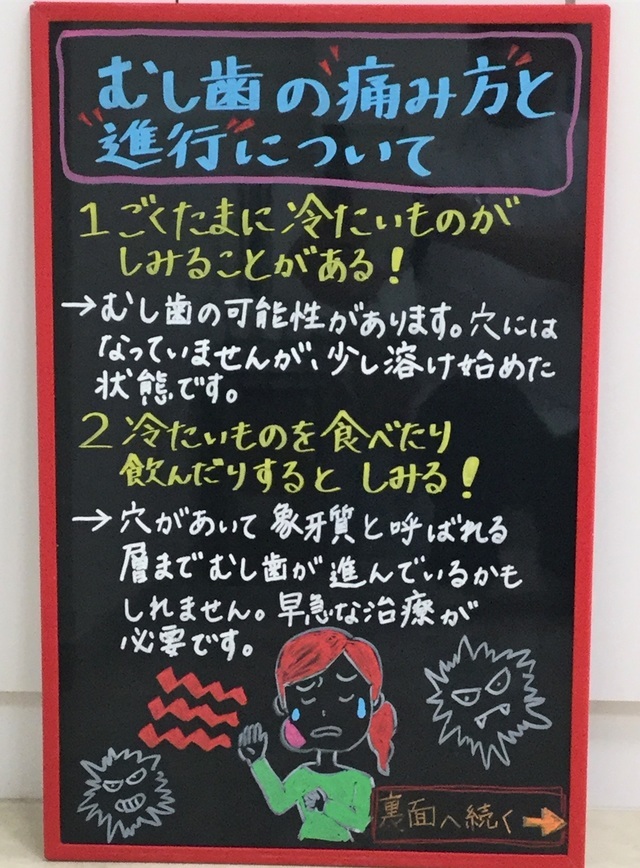 むし歯の痛み方と
進行について
1 ごくたまに冷たいものが
しみることがある!
→むし歯の可能性があります。穴には
なっていませんが、少し溶け始めた
状態です。
2 冷たいものを食べたり
飲んだりすると しみる!
→穴があいて象牙質と呼ばれる
層までむし歯が進んでいるかも
しれません。早急な治療が
必要です。
裏面へ続く→